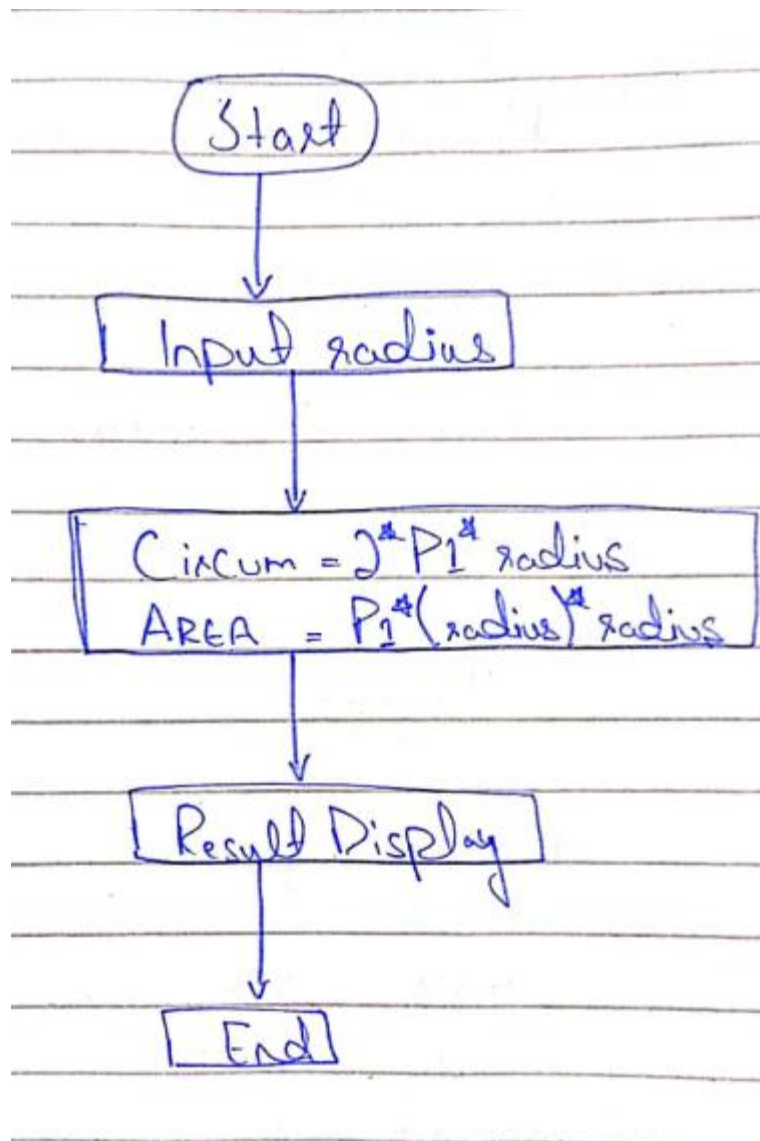 Start
Input radius
Circum = 2*PI* radius
AREA = PI*(radius)* radius
Result Display
End